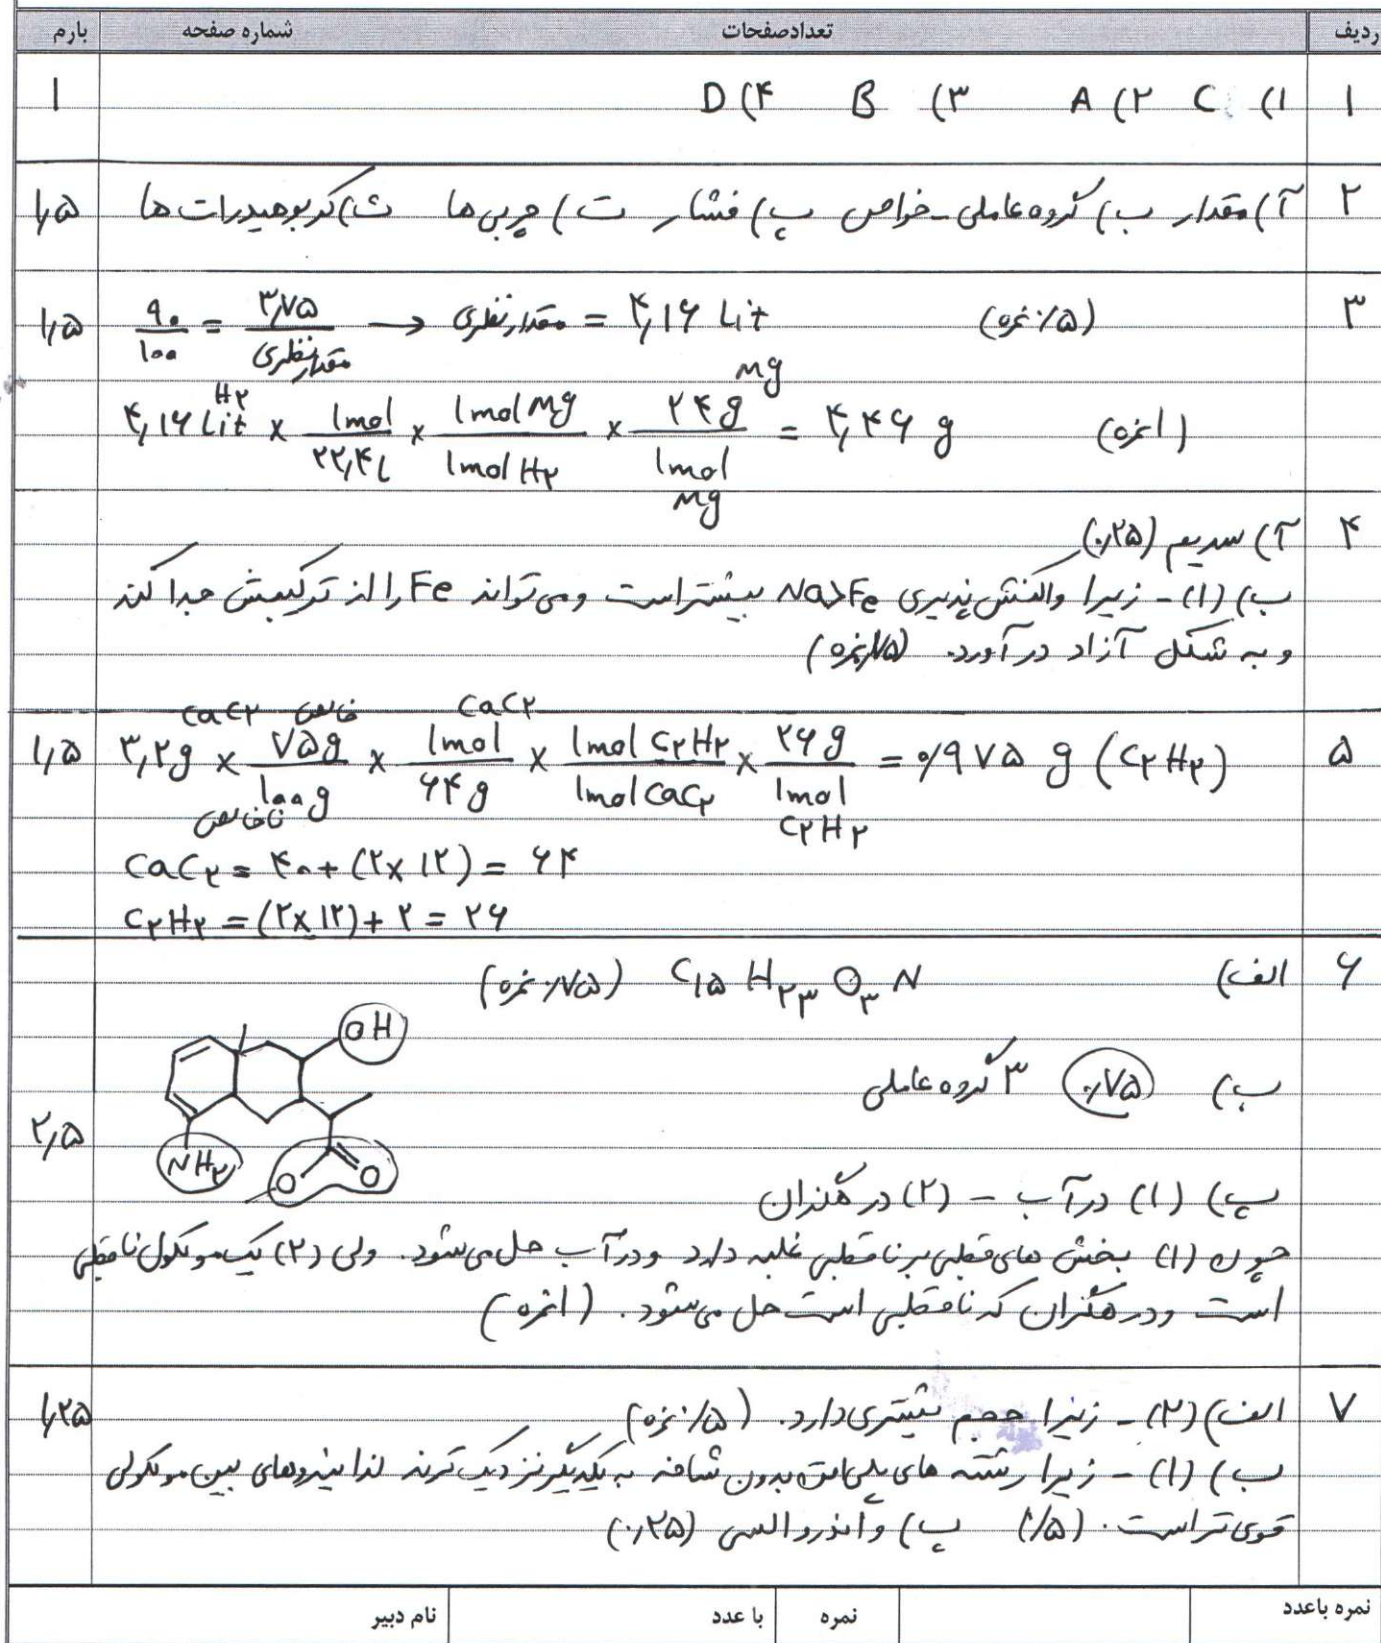 ردیف تعدادصفحات شماره صفحه بارم
۱ ۱) C ۲) A ۳) B ۴) D ۱
۲ آ) مقدار ب) گروه عاملی - خواص پ) فشار ت) چربی ها ث) کربوهیدرات ها ۱,۵
۳ ۹۰/۱۰۰ = ۳,۷۵/مقدار نظری → مقدار نظری = ۴,۱۶ Lit (۰/۵ نمره) ۱,۵
۴,۱۶ Lit H۲ × 1mol/۲۲,۴L × 1mol Mg/1mol H۲ × ۲۴g Mg/1mol Mg = ۴,۴۶ g (۱ نمره)
۴ آ) سدیم (۰,۲۵)
ب) (۱) - زیرا واکنش پذیری Na>Fe بیشتر است و می تواند Fe را از ترکیبش جدا کند
و به شکل آزاد درآورد. (۰/۷۵ نمره)
۵ ۳,۲g × ۷۵g CaC۲ خالص/۱۰۰g ناخالص × 1mol CaC۲/۶۴g × 1mol C۲H۲/1mol CaC۲ × ۲۶g/1mol C۲H۲ = ۰/۹۷۵ g (C۲H۲) ۱,۵
CaC۲ = ۴۰ + (۲×۱۲) = ۶۴
C۲H۲ = (۲×۱۲) + ۲ = ۲۶
۶ الف) C۱۵ H۲۳ O۳ N (۰/۷۵ نمره)
OH
ب) ۰,۷۵ ۳ گروه عاملی
۲,۵
NH۲ O O
پ) (۱) در آب - (۲) در هگزان
چون (۱) بخش های قطبی بر ناقطبی غلبه دارد و در آب حل می شود. ولی (۲) یک مولکول ناقطبی
است و در هگزان که ناقطبی است حل می شود. (۱ نمره)
۷ الف) (۲) - زیرا حجم بیشتری دارد. (۰/۵ نمره) ۱,۲۵
ب) (۱) - زیرا رشته های پلی اتن بدون شاخه به یکدیگر نزدیک ترند لذا نیروهای بین مولکولی
قوی تر است. (۰/۵) پ) واندروالسی (۰,۲۵)
نمره باعدد نمره با عدد نام دبیر